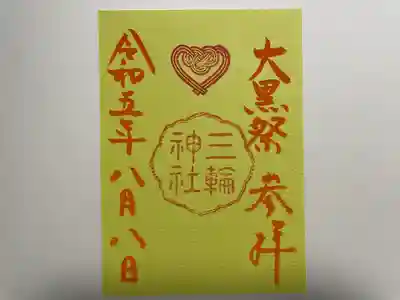 大黒祭 参拝
三輪
神社
令和五年 八月八日